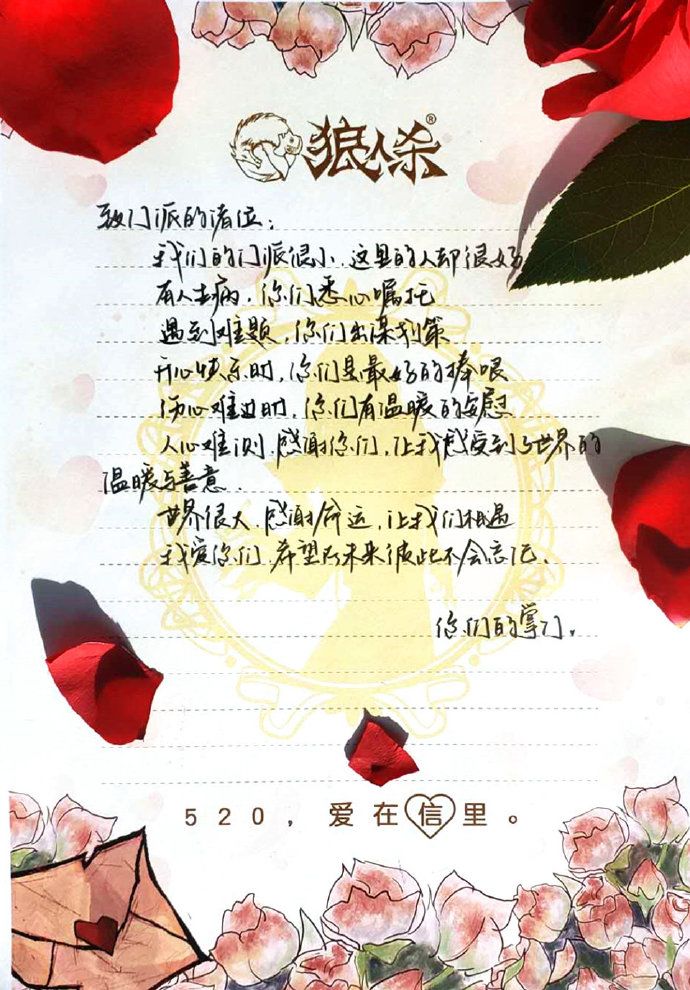 狼人杀®
致门派的诸位：
我们的门派很小，这里的人却很好
有人生病，你们悉心嘱托
遇到难题，你们出谋划策
开心快乐时，你们是最好的捧哏
伤心难过时，你们有温暖的安慰
人心难测，感谢你们，让我感受到了世界的
温暖与善意．
世界很大，感谢命运，让我们相遇
我爱你们，希望在未来彼此不会忘记．
你们的掌门．
520，爱在信里。